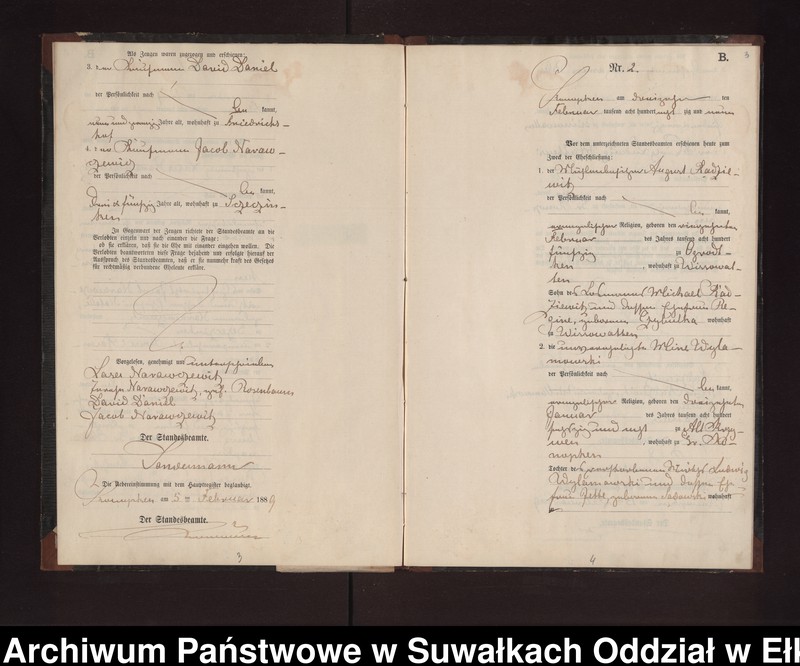 Als Zeugen waren zugezogen und erschienen:
3. der Kaufmann David Daniel
der Persönlichkeit nach
kannt,
neunundzwanzig Jahre alt, wohnhaft zu Friedrichs-
hof
4. der Kaufmann Jacob Nawaw-
czewitz
der Persönlichkeit nach
kannt,
fünfzig Jahre alt, wohnhaft zu Szczezin-
ken
In Gegenwart der Zeugen richtete der Standesbeamte an die
Verlobten einzeln und nach einander die Frage:
ob sie erklären, daß sie die Ehe mit einander eingehen wollen. Die
Verlobten beantworteten diese Frage bejahend und erfolgte hierauf der
Ausspruch des Standesbeamten, daß er sie nunmehr kraft des Gesetzes
für rechtmäßig verbundene Eheleute erkläre.
Vorgelesen, genehmigt und unterschrieben
Laser Nawawczewitz
Nawawczewitz, geb. Rosenbaum
David Daniel
Jacob Nawawczewitz
Der Standesbeamte.
Die Uebereinstimmung mit dem Hauptregister beglaubigt.
am 5ten Februar 1889
Der Standesbeamte.
3
B.
Nr. 2.
am dreizehn ten
Februar tausend acht hundert achtzig und neun
Vor dem unterzeichneten Standesbeamten erschienen heute zum
Zweck der Eheschließung:
1. der August Radzie-
witz
der Persönlichkeit nach
kannt,
evangelischer Religion, geboren den
Februar des Jahres tausend acht hundert
fünfzig zu Ogrodt-
ken, wohnhaft zu Wirrowat-
ten
Sohn des Losmanns Michael Rad-
ziewitz und dessen Ehefrau Re-
gine, geborenen wohnhaft
zu Wirrowatten
2. die unverehelichte Mine Wyla-
mowski
der Persönlichkeit nach
kannt,
evangelischer Religion, geboren den dreizehnten
Januar des Jahres tausend acht hundert
sechszig und acht zu Alt
, wohnhaft zu Gr. Ro-
Tochter des verstorbenen Wirths Ludwig
Wylamowski und dessen Ehe-
frau Jette, geborenen wohnhaft
4
Archiwum Państwowe w Suwałkach Oddział w Eł